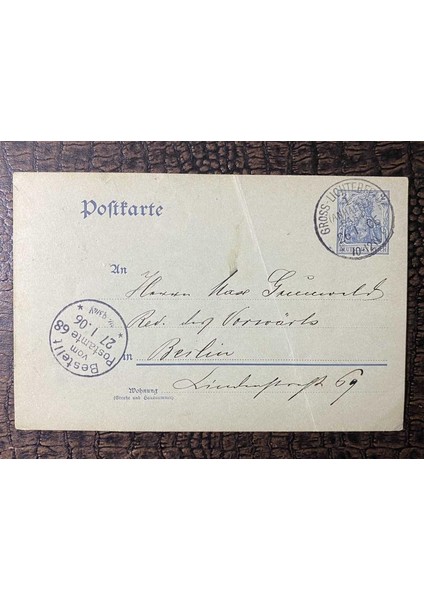 Postkarte
GROSS-LICHTERFELDE
10-12
An
Herrn Max Grunwald
Red. des Vorwärts
in Berlin
Lindenstraße 69
Wohnung
(Straße und Hausnummer)
Bestellt
vom
Postamte 68
27.1.06